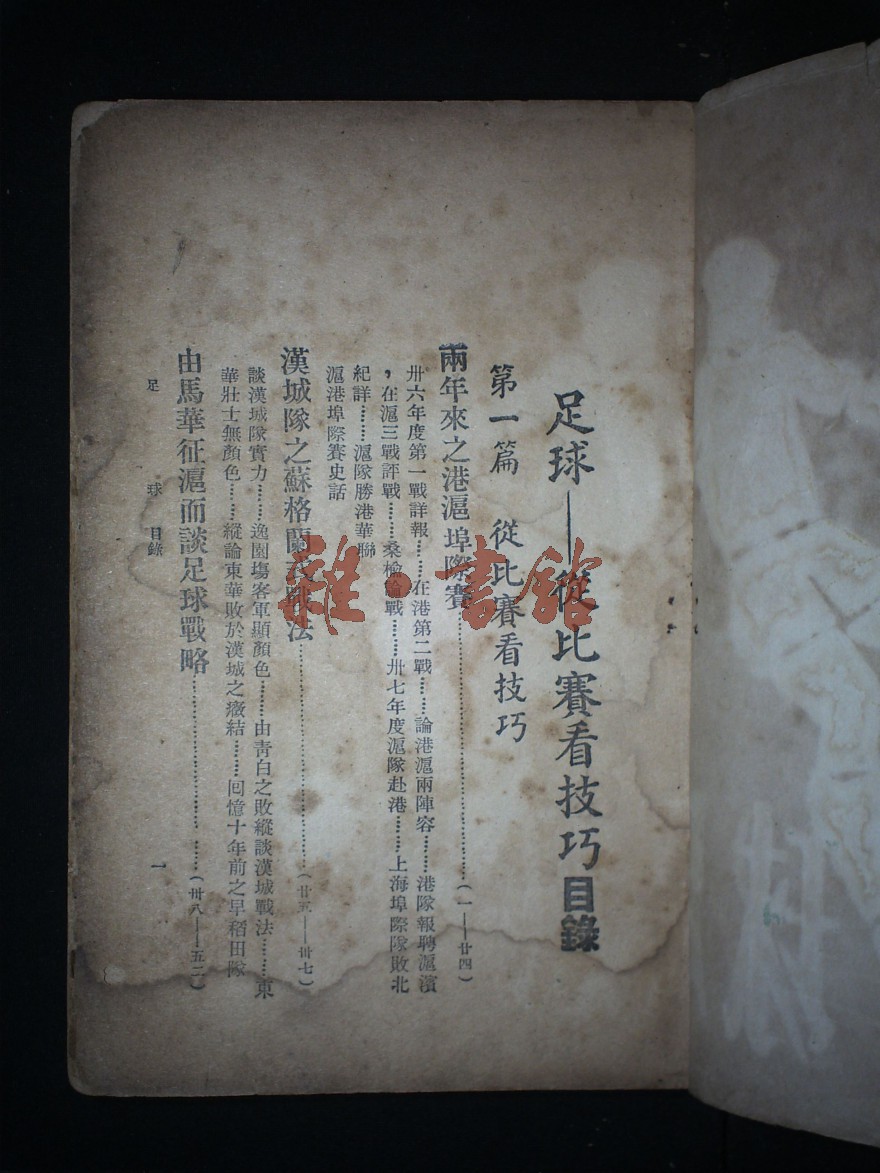 足球——從比賽看技巧目錄
第一篇 從比賽看技巧
兩年來之港滬埠際賽……(一——廿四)
卅六年度第一戰詳報……在港第二戰……論港滬兩陣容……港隊報聘滬濱
，在滬三戰評戰……桑榆論戰……卅七年度滬隊赴港……上海埠際隊敗北
紀詳……滬隊勝港華聯
滬港埠際賽史話
漢城隊之蘇格蘭式戰法……(廿五——卅七)
談漢城隊實力……逸園塲客軍顯顏色……由青白之敗縱談漢城戰法……東
華壯士無顏色……縱論東華敗於漢城之癥結……回憶十年前之早稻田隊
由馬華征滬而談足球戰略……(卅八——五二)
足球 目錄 一
雜·書館